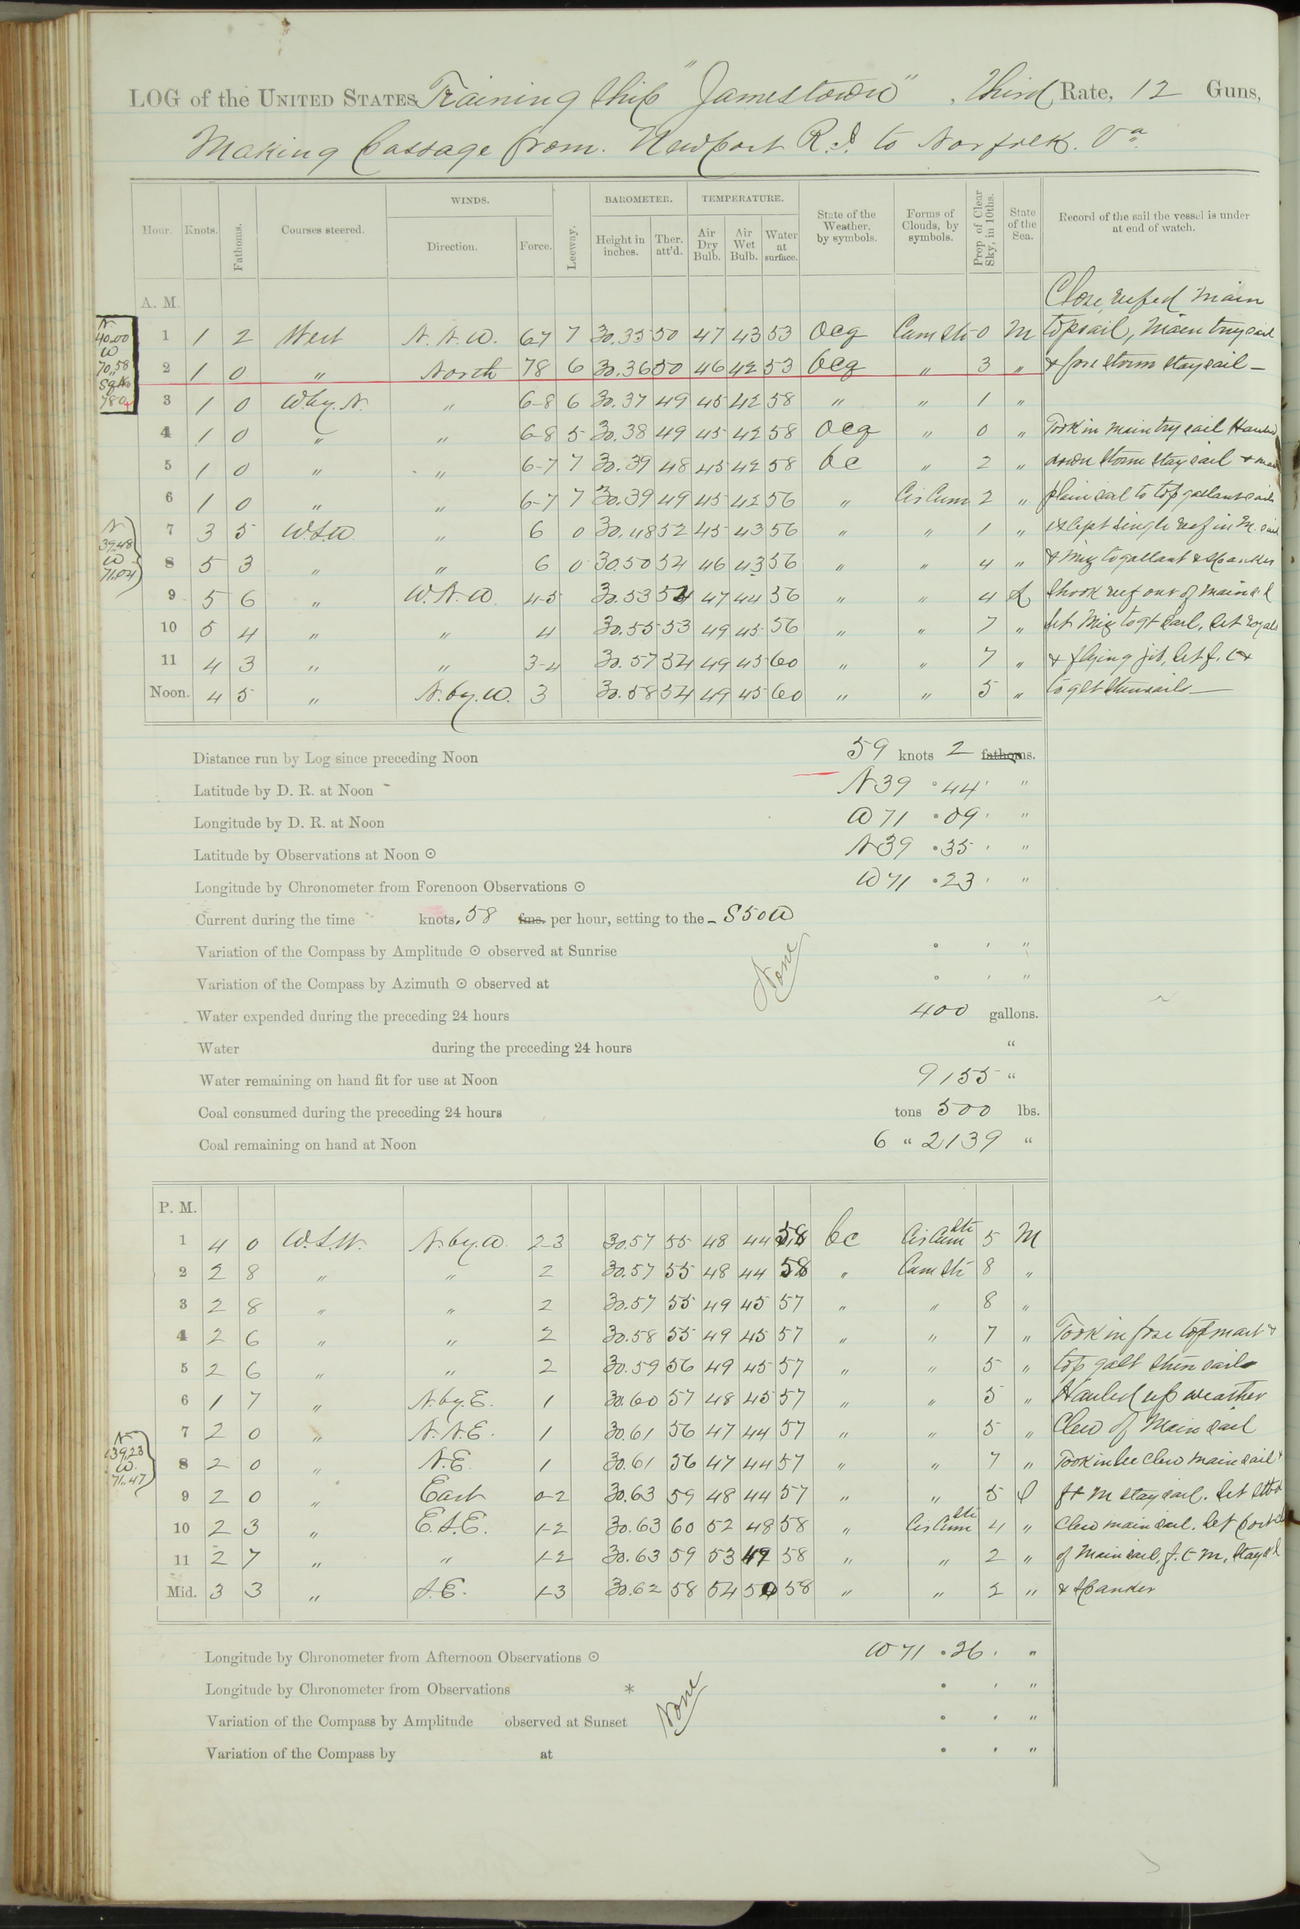 LOG of the UNITED STATES Training Ship "Jamestown", Third Rate, 12 Guns,
Making Passage from Newport R.I. to Norfolk. Va.
Hour. Knots. Fathoms. Courses steered. WINDS. Direction. Force. Leeway. BAROMETER. Height in inches. Ther. att'd. TEMPERATURE. Air Dry Bulb. Air Wet Bulb. Water at surface. State of the Weather, by symbols. Forms of Clouds, by symbols. Prop. of Clear Sky, in 10ths. State of the Sea. Record of the sail the vessel is under at end of watch.
A. M. Close reefed main
1 1 2 West N.N.W. 6-7 7 30.35 50 47 43 53 ocq Cum Str 0 M topsail, Main trysail
2 1 0 " North 78 6 30.36 50 46 42 53 bcq " 3 " & fore storm staysail —
3 1 0 W.by.N. " 6-8 6 30.37 49 45 42 58 " " 1 "
4 1 0 " " 6-8 5 30.38 49 45 42 58 ocq " 0 " Took in main try sail Hauled
5 1 0 " " 6-7 7 30.39 48 45 42 58 bc " 2 " down storm stay sail & made
6 1 0 " " 6-7 7 30.39 49 45 42 56 " Cir Cum 2 " plain sail to top gallant sails
7 3 5 W.S.W. " 6 0 30.48 52 45 43 56 " " 1 " except single reef in M. sail
8 5 3 " " 6 0 30.50 52 46 43 56 " " 4 " & Miz togallant & Spanker
9 5 6 " W.N.W. 4-5 30.53 54 47 44 56 " " 4 L Shook reef out of mainsl
10 5 4 " " 4 30.55 53 49 45 56 " " 7 " Set Miz togt sail, Set royals
11 4 3 " " 3-4 30.57 54 49 45 60 " " 7 " & flying jib, Set f. t &
Noon. 4 5 " N.by.W. 3 30.58 54 49 45 60 " " 5 " to glt stunsails —
N
40.00
W
70.58
780
N
39.48
W
71.04
Distance run by Log since preceding Noon 59 knots 2 fathoms.
Latitude by D. R. at Noon N 39 ° 44 ' "
Longitude by D. R. at Noon W 71 ° 09 ' "
Latitude by Observations at Noon ⊙ N 39 ° 35 ' "
Longitude by Chronometer from Forenoon Observations ⊙ W 71 ° 23 ' "
Current during the time knots .58 fms. per hour, setting to the - S 50 W
Variation of the Compass by Amplitude ⊙ observed at Sunrise ° ' "
Variation of the Compass by Azimuth ⊙ observed at ° ' "
None
Water expended during the preceding 24 hours 400 gallons.
Water during the preceding 24 hours "
Water remaining on hand fit for use at Noon 9155 "
Coal consumed during the preceding 24 hours tons 500 lbs.
Coal remaining on hand at Noon 6 " 2139 "
P. M.
1 4 0 W.S.W. N.by.W. 2-3 30.57 55 48 44 58 bc Cir Cum Str 5 M
2 2 8 " " 2 30.57 55 48 44 58 " Cum Str 8 "
3 2 8 " " 2 30.57 55 49 45 57 " " 8 "
4 2 6 " " 2 30.58 55 49 45 57 " " 7 " Took in fore topmast &
5 2 6 " " 2 30.59 56 49 45 57 " " 5 " top gallt stun sails
6 1 7 " N.by.E. 1 30.60 57 48 45 57 " " 5 " Hauled up weather
7 2 0 " N.N.E. 1 30.61 56 47 44 57 " " 5 " Clew of Main sail
8 2 0 " N.E. 1 30.61 56 47 44 57 " " 7 " Took in lee clew main sail &
9 2 0 " East 0-2 30.63 59 48 44 57 " " 5 L f & M staysail. Set stbd
10 2 3 " E.S.E. 1-2 30.63 60 52 48 58 " Cir Cum Str 4 " Clew main sail. Set port
11 2 7 " " 1-2 30.63 59 53 49 58 " " 2 " of Main sail, f. & M. Staysl
Mid. 3 3 " S.E. 1-3 30.62 58 54 50 58 " " 2 " & Spanker
N
39.23
W.
71.47
Longitude by Chronometer from Afternoon Observations ⊙ W 71 ° 26 ' "
Longitude by Chronometer from Observations * ° ' "
None
Variation of the Compass by Amplitude observed at Sunset ° ' "
Variation of the Compass by at ° ' "